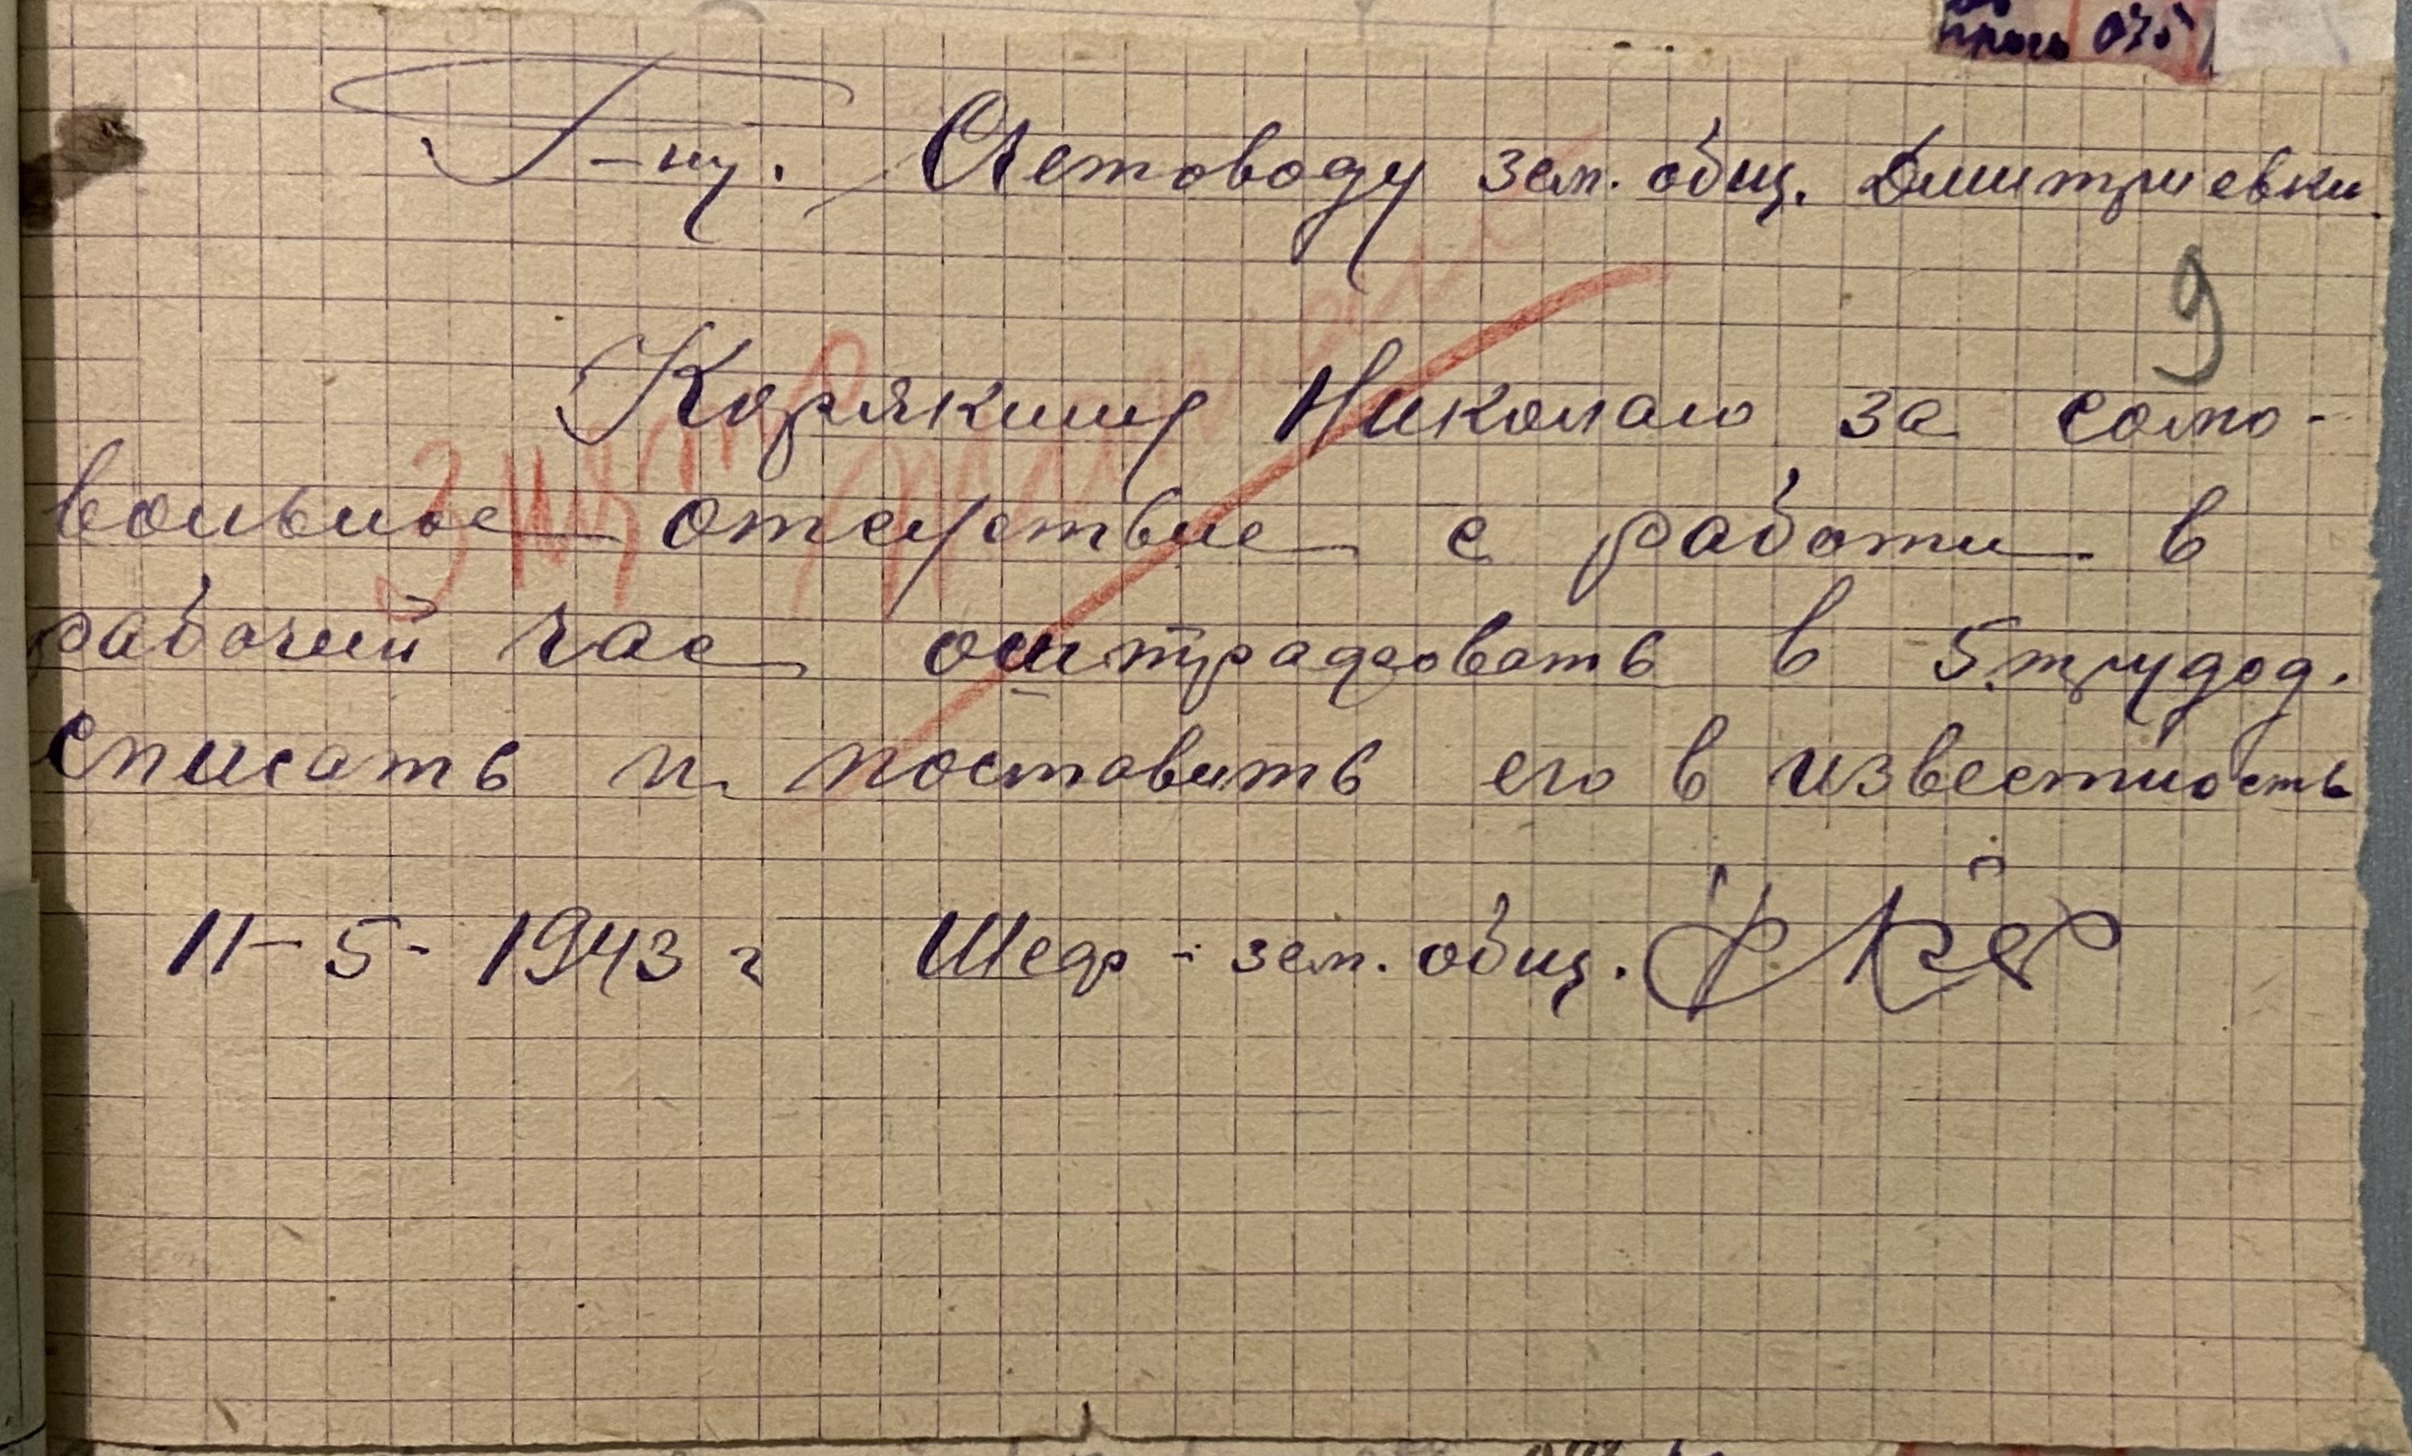 Г-ну. Счетоводу зем. общ. Дмитриевки.
9
Корякину Николаю за само-
вольное отсуртвие с работи в
рабочий час оштрафовать в 5 трудод.
списать и поставить его в известность
11-5-1943 г Шеф - зем. общ.